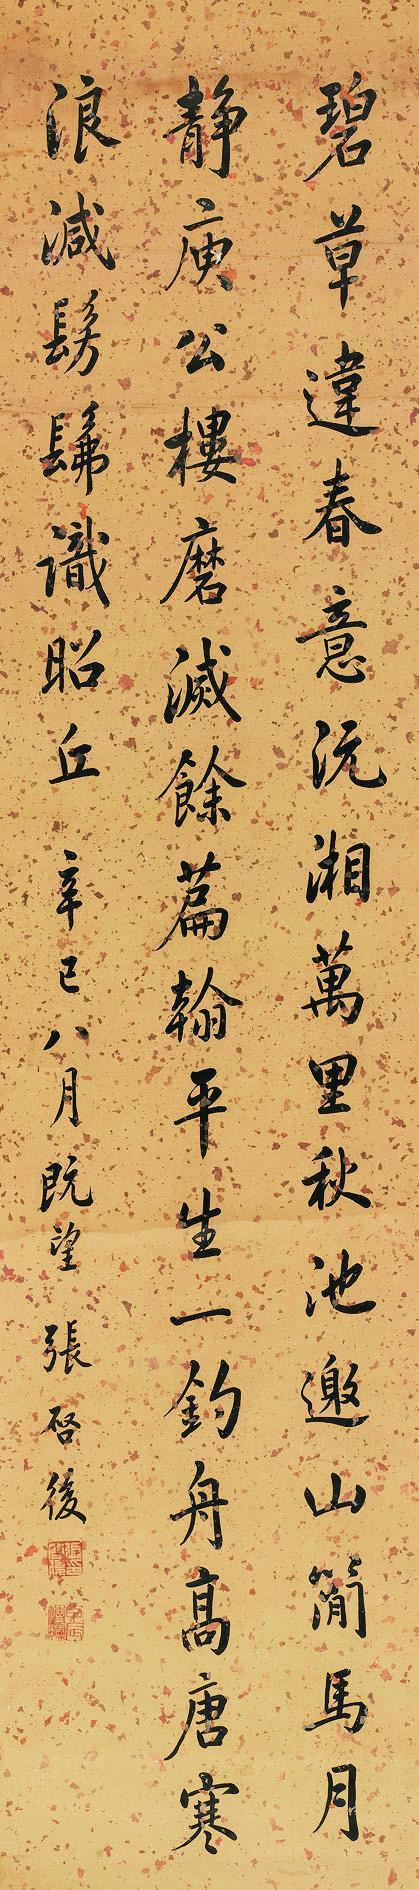 碧草違春意沅湘萬里秋池邀山簡馬月
静庾公樓磨滅餘篇翰平生一釣舟高唐寒
浪減髣髴識昭丘 辛巳八月既望 張啓後